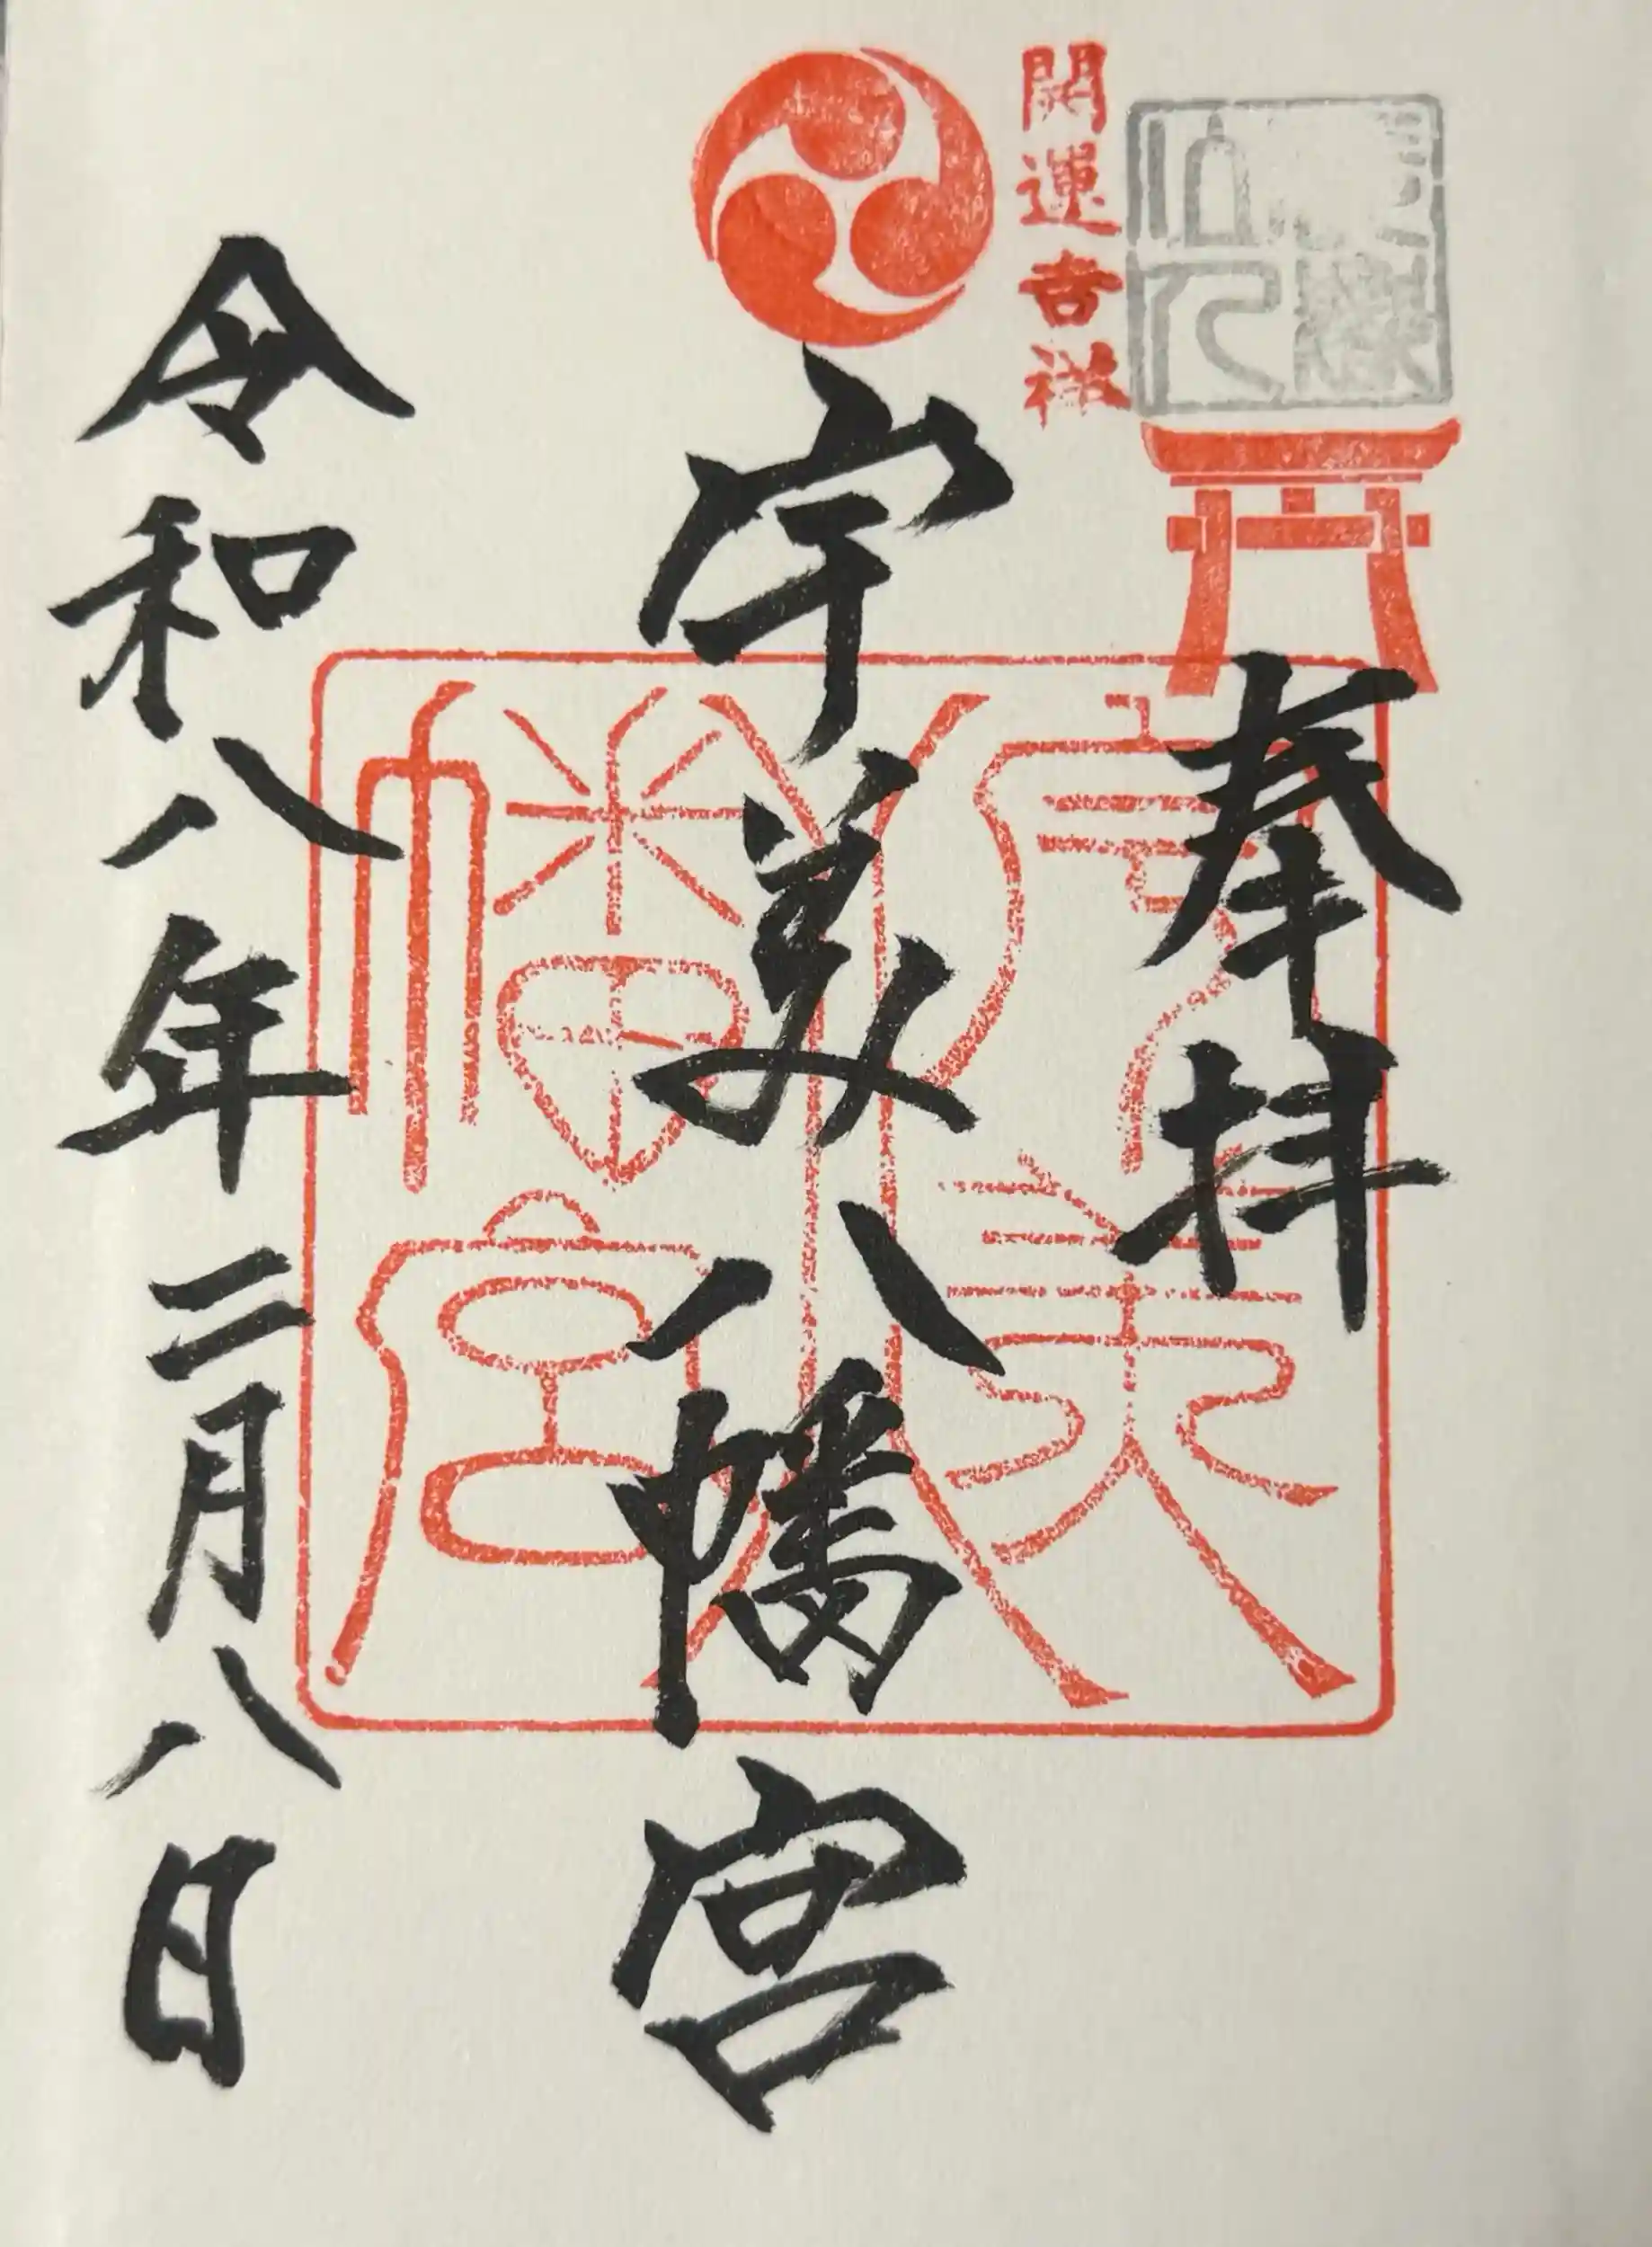 開運吉祥
奉拝
宇美八幡宮
宇美八幡宮
令和八年二月八日